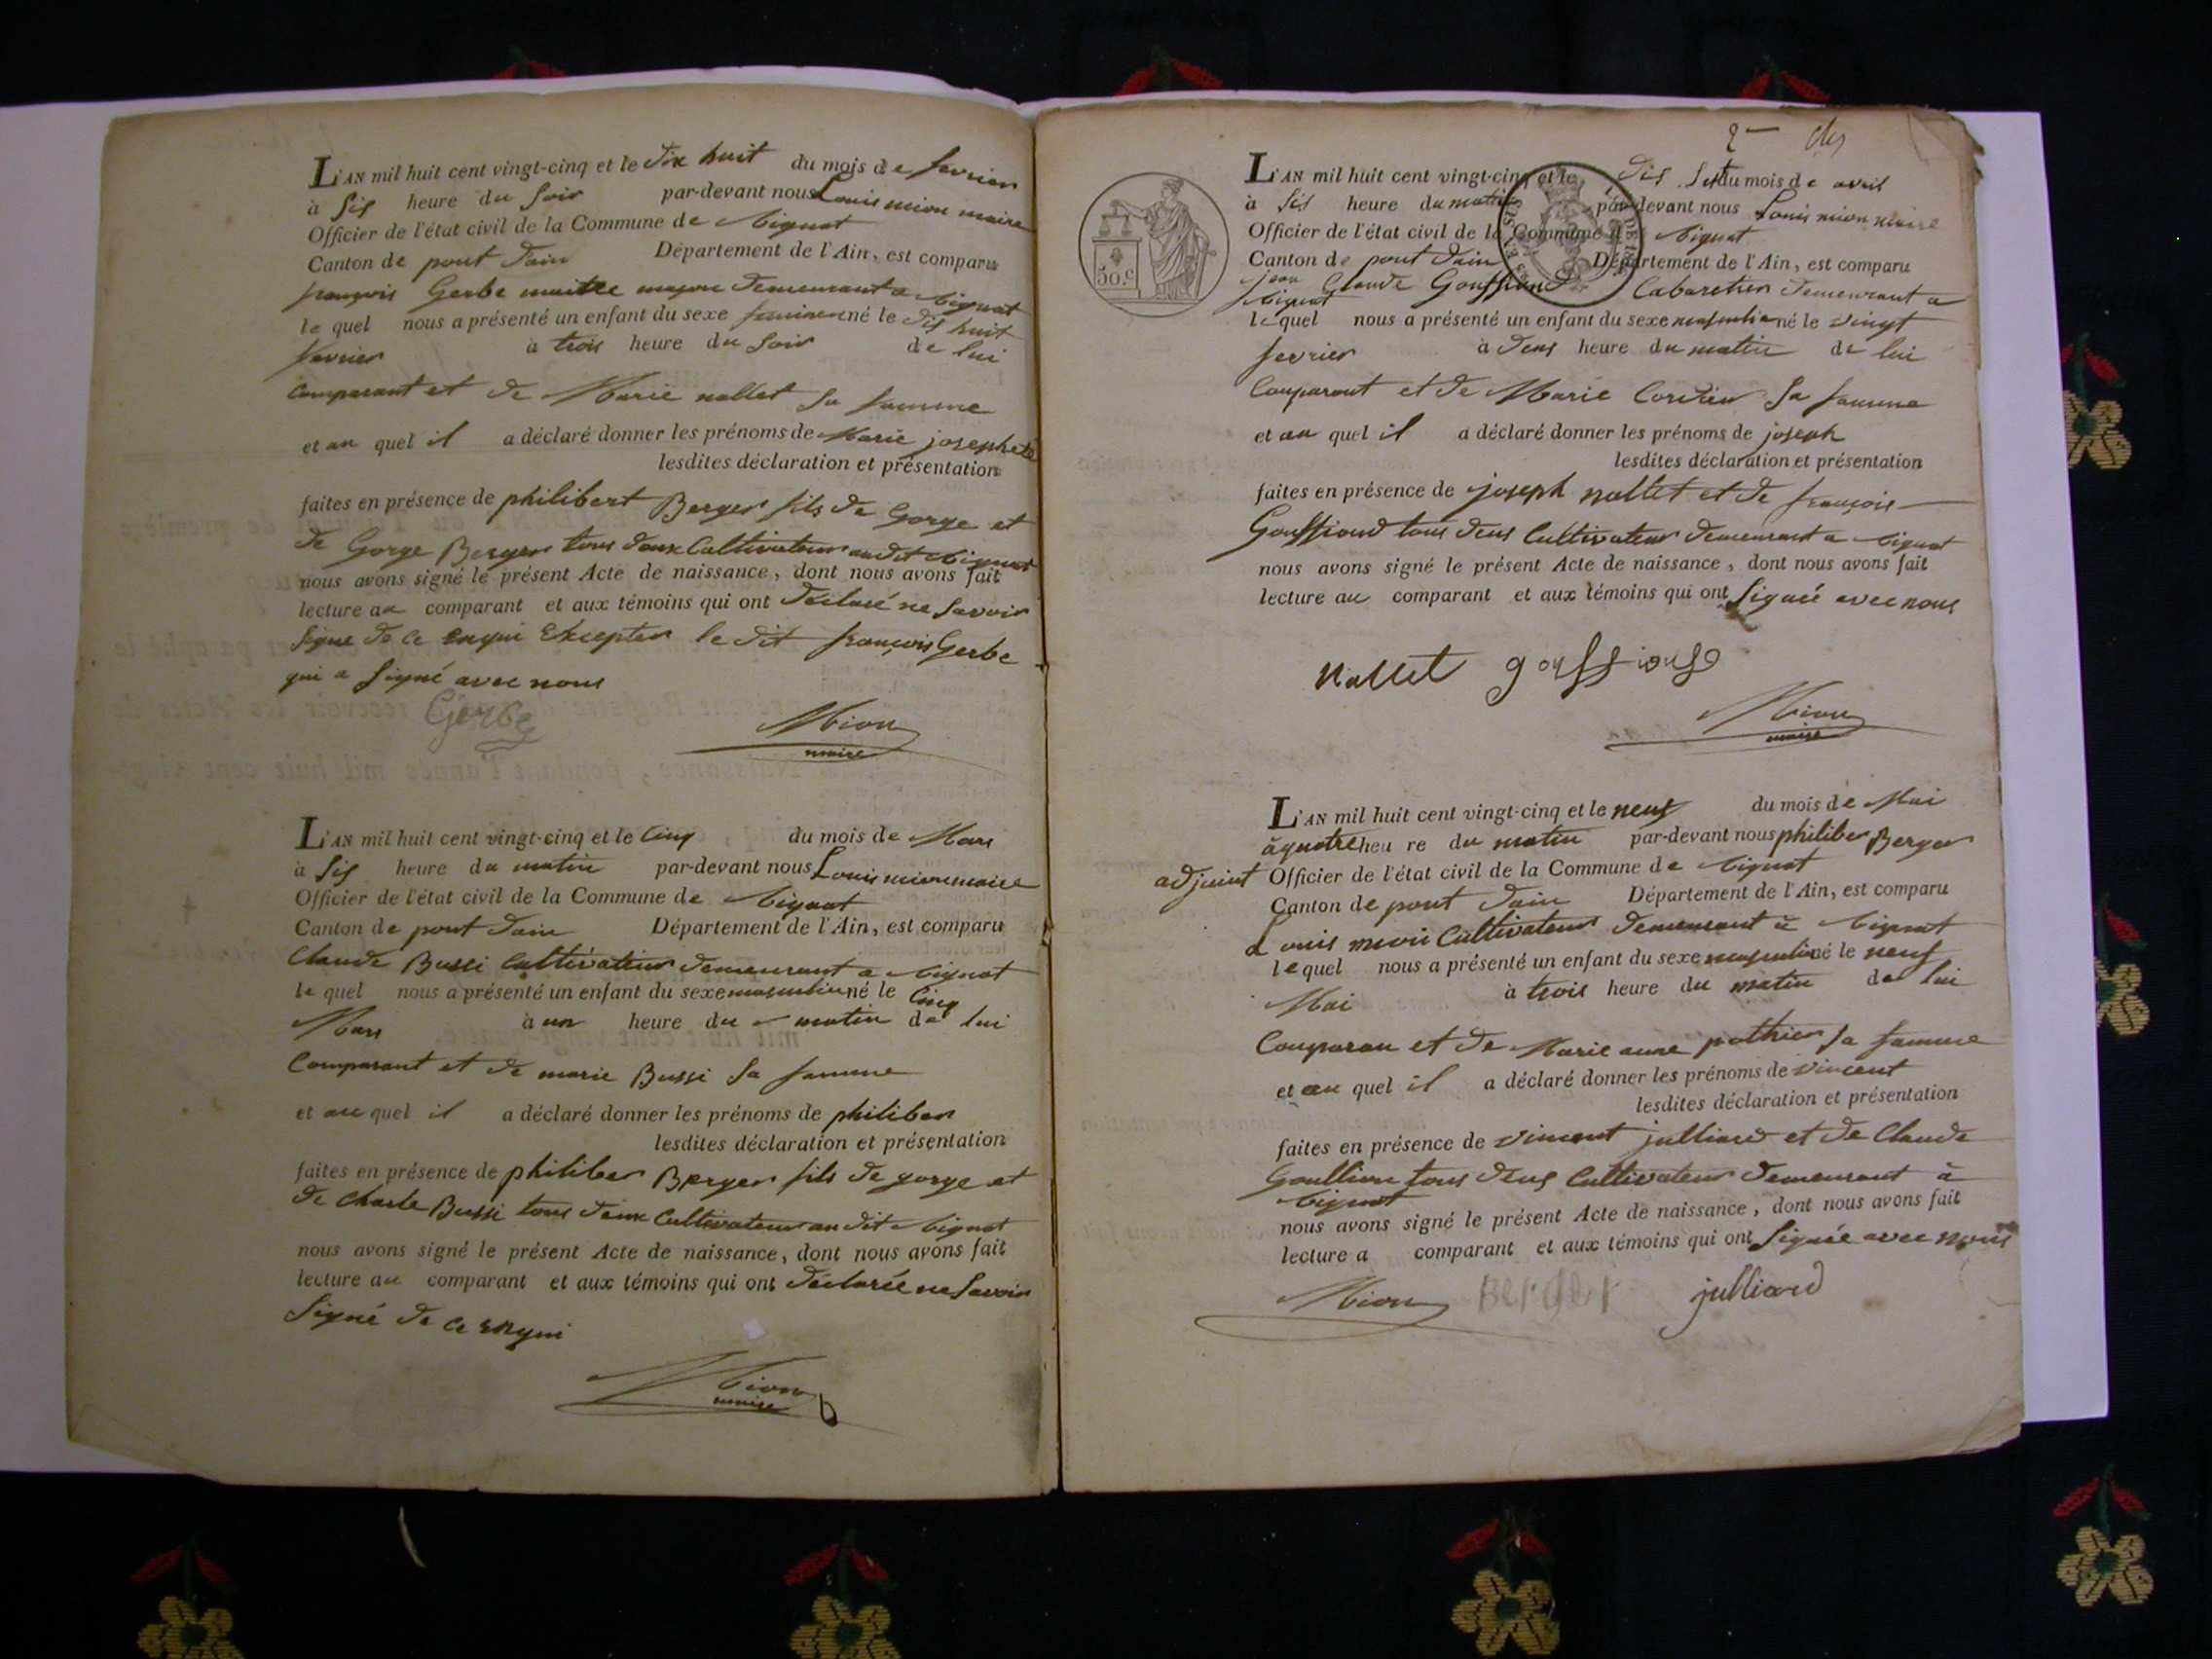 L'AN mil huit cent vingt-cinq et le dix huit du mois de fevrier
à sis heure du soir par-devant nous Louis mion maire
Officier de l'état civil de la Commune de
Canton de pont dain Département de l'Ain, est comparu
françois Gerbe maitre maçon demeurant a
le quel nous a présenté un enfant du sexe feminen né le dis huit
fevrier à trois heure du soir de lui
comparant et de Marie nallet sa famme
et au quel il a déclaré donner les prénoms de Marie josephete
lesdites déclaration et présentation
faites en présence de philibert Berger fils de Gorge et
de Gorge Berger tous deux Cultivateur au dit
nous avons signé le présent Acte de naissance, dont nous avons fait
lecture au comparant et aux témoins qui ont déclaré ne savoir
signe de ce enqui Excepter le dit françois Gerbe
qui a signé avec nous
Gerbe Mion
maire
L'AN mil huit cent vingt-cinq et le Cinq du mois de Mars
à sis heure du matin par-devant nous Louis mion maire
Officier de l'état civil de la Commune de
Canton de pont dain Département de l'Ain, est comparu
Claude Bussi Cultivateur demeurant a
le quel nous a présenté un enfant du sexe masculin né le Cinq
Mars à un heure du matin de lui
Comparant et de marie Bussi sa famme
et au quel il a déclaré donner les prénoms de philiber
lesdites déclaration et présentation
faites en présence de philiber Berger fils de gorge et
de Charle Bussi tous deux Cultivateur au dit
nous avons signé le présent Acte de naissance, dont nous avons fait
lecture au comparant et aux témoins qui ont déclarée ne savoir
Signé de ce enqui
Mion
maire
2
L'AN mil huit cent vingt-cinq et le dis sept du mois de avril
à sis heure du matin par-devant nous Louis mion maire
Officier de l'état civil de la Commune de
50.c
Canton de pont dain Département de l'Ain, est comparu
jean Claude Gouffiond Cabaretier demeurant a
le quel nous a présenté un enfant du sexe masculin né le vingt
fevrier à deus heure du matin de lui
Comparant et de Marie Cordier sa famme
et au quel il a déclaré donner les prénoms de joseph
lesdites déclaration et présentation
faites en présence de joseph nallet et de françois
Gouffiond tous deus Cultivateur demeurant a
nous avons signé le présent Acte de naissance, dont nous avons fait
lecture au comparant et aux témoins qui ont signée avec nous
nallet
Mion
maire
L'AN mil huit cent vingt-cinq et le neuf du mois de Mai
à quatre heure du matin par-devant nous philiber Berger
adjoint Officier de l'état civil de la Commune de
Canton de pont dain Département de l'Ain, est comparu
Louis mion Cultivateur demeurant à
le quel nous a présenté un enfant du sexe masculin né le neuf
Mai à trois heure du matin de lui
Comparan et de Marie anne pothier sa famme
et au quel il a déclaré donner les prénoms de vincent
lesdites déclaration et présentation
faites en présence de vincent julliard et de Claude
tous deus Cultivateur demeurant à
nous avons signé le présent Acte de naissance, dont nous avons fait
lecture a comparant et aux témoins qui ont signée avec nous
Mion Berger julliard